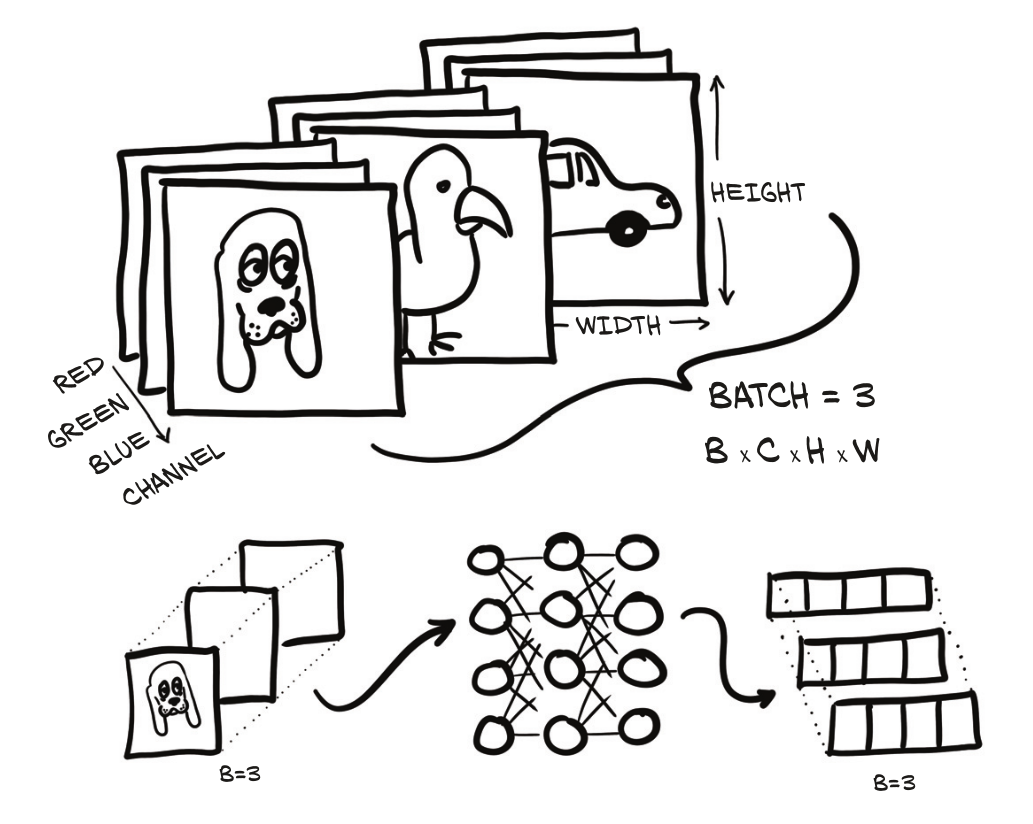 HEIGHT
WIDTH
RED
GREEN
BLUE
CHANNEL
BATCH = 3
B x C x H x W
B=3
B=3